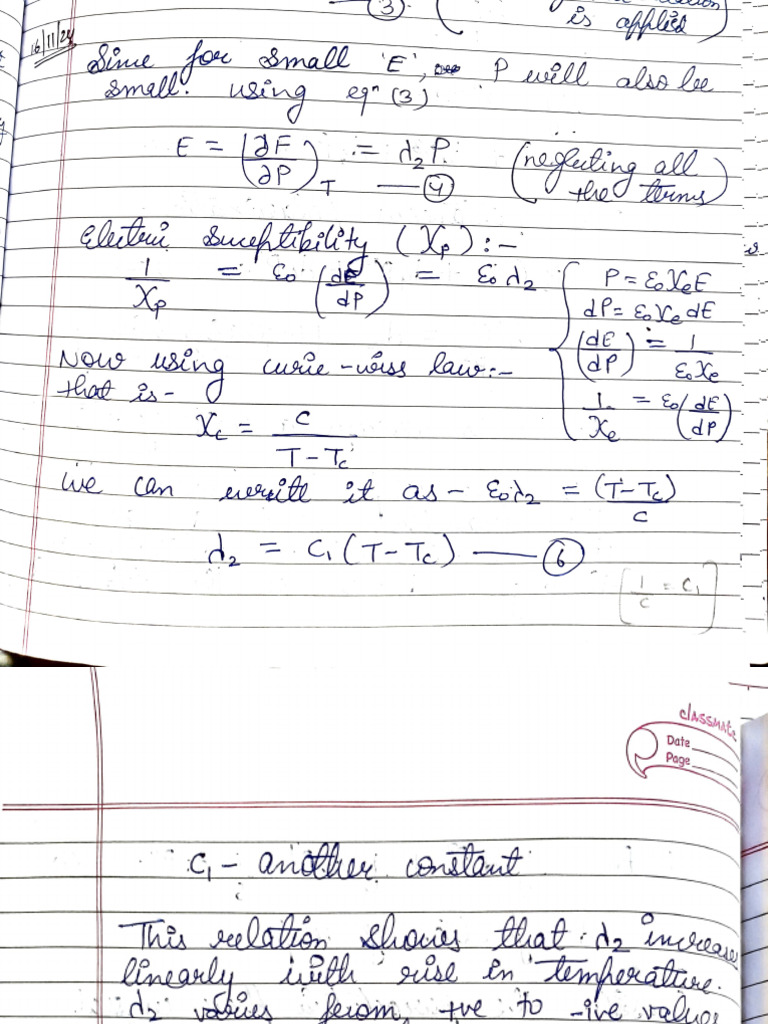 ③
is applied)
16/11/24
Since for small 'E', P will also be
small. using eqⁿ (3)
E = (∂F/∂P)_T := λ₂P. (neglecting all
④ the terms)
Electric Suceptibility (χp) :-
1/χp = ε₀ (dE/dP) = ε₀λ₂
P = ε₀χeE
dP = ε₀χe dE
(dE/dP) = 1/ε₀χe
1/χe = ε₀(dE/dP)
Now using curie-wiss law:-
that is -
χc = C/(T-Tc)
we can write it as - ε₀λ₂ = (T-Tc)/C
λ₂ = C₁ (T-Tc) —— ⑥
[1/C = C₁]
classmate
Date
Page
C₁ - another constant
This relation shows that λ₂ increase
linearly with rise in temperature.
λ₂ varies from +ve to -ive value